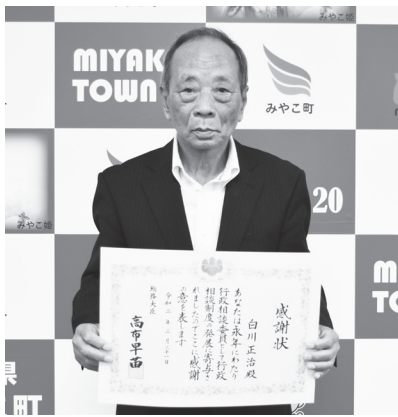 みやこ姫
MIYAK
TOWN
みやこ町
みやこ姫
20
感謝状
白川正治殿
あなたは永年にわたり
行政相談委員として行政
相談制度の発展に寄与さ
れましたのでここに感謝
の意を表します
総務大臣
高市早苗
M
TO
県
町